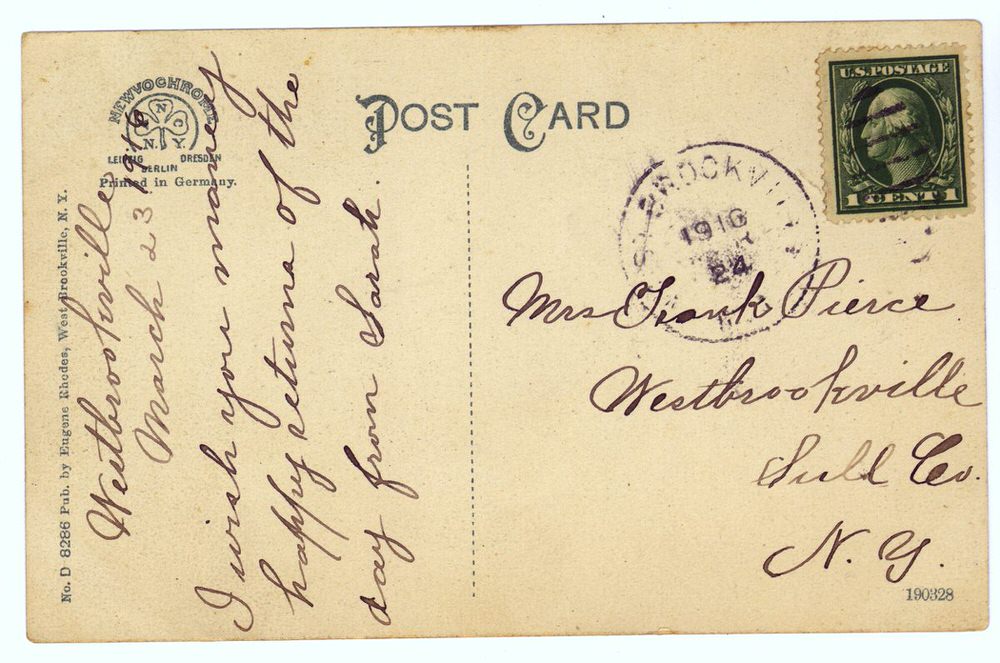 NEWVOCHROME
N
N.Y.
LEIPZIG DRESDEN
BERLIN
Printed in Germany.
POST CARD
U.S. POSTAGE
1 CENT 1
BROCKVILL
1916
24
No. D 8286 Pub. by Eugene Rhodes, West Brookville, N. Y.
Westbrookville
March 23 1916
I wish you maney
happy returns of the
day from Sarah.
Mrs Frank Pierce
Westbrookville
Sull Co.
N. Y.
190328